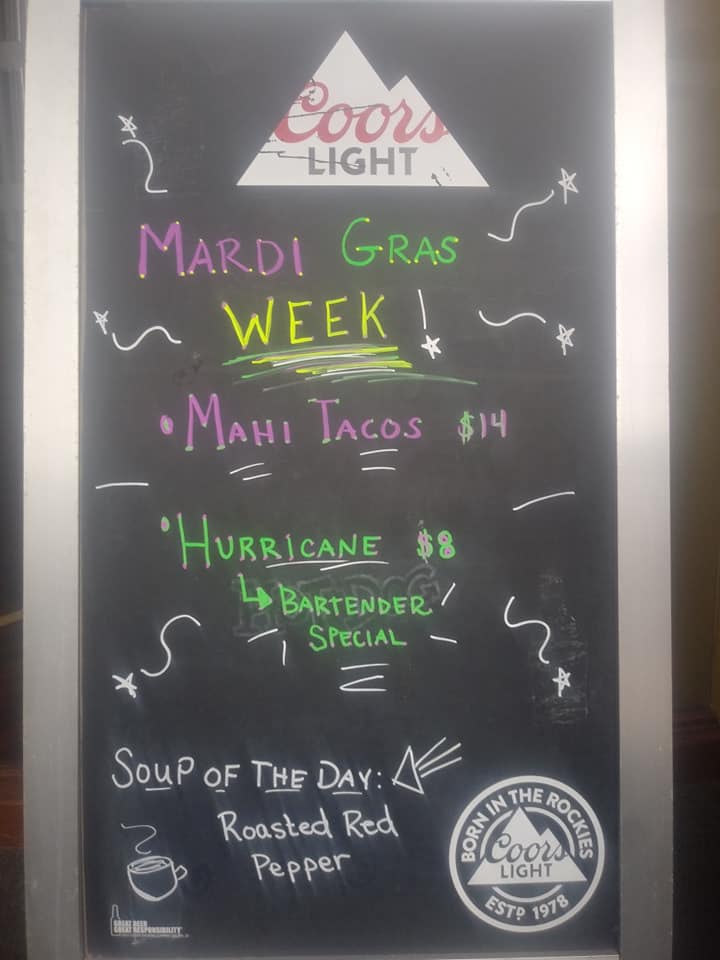 Coors
LIGHT
MARDI GRAS
WEEK!
• MAHI TACOS $14
• HURRICANE $8
HOT DOG
↳ BARTENDER
SPECIAL
SOUP OF THE DAY:
Roasted Red
Pepper
BORN IN THE ROCKIES
Coors
LIGHT
ESTD 1978
GREAT BEER
GREAT RESPONSIBILITY